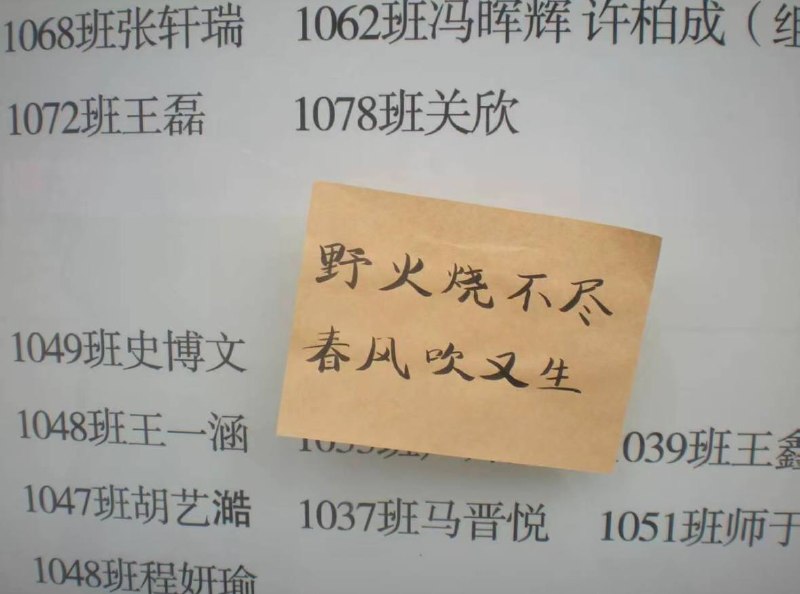 1068班张轩瑞 1062班冯晖辉 许柏成（组
1072班王磊 1078班关欣
野火烧不尽
春风吹又生
1049班史博文
1048班王一涵 1039班王鑫
1047班胡艺澔 1037班马晋悦 1051班师于
1048班程妍瑜